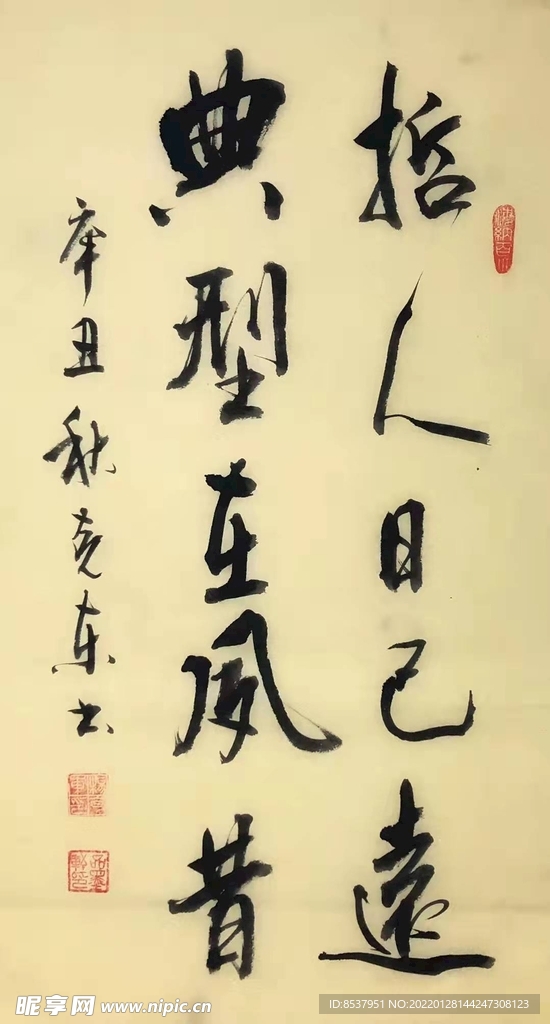 哲人日已遠
典型在夙昔
辛丑秋克東书
昵享网 www.nipic.cn
ID:8537951 NO:20220128144247308123